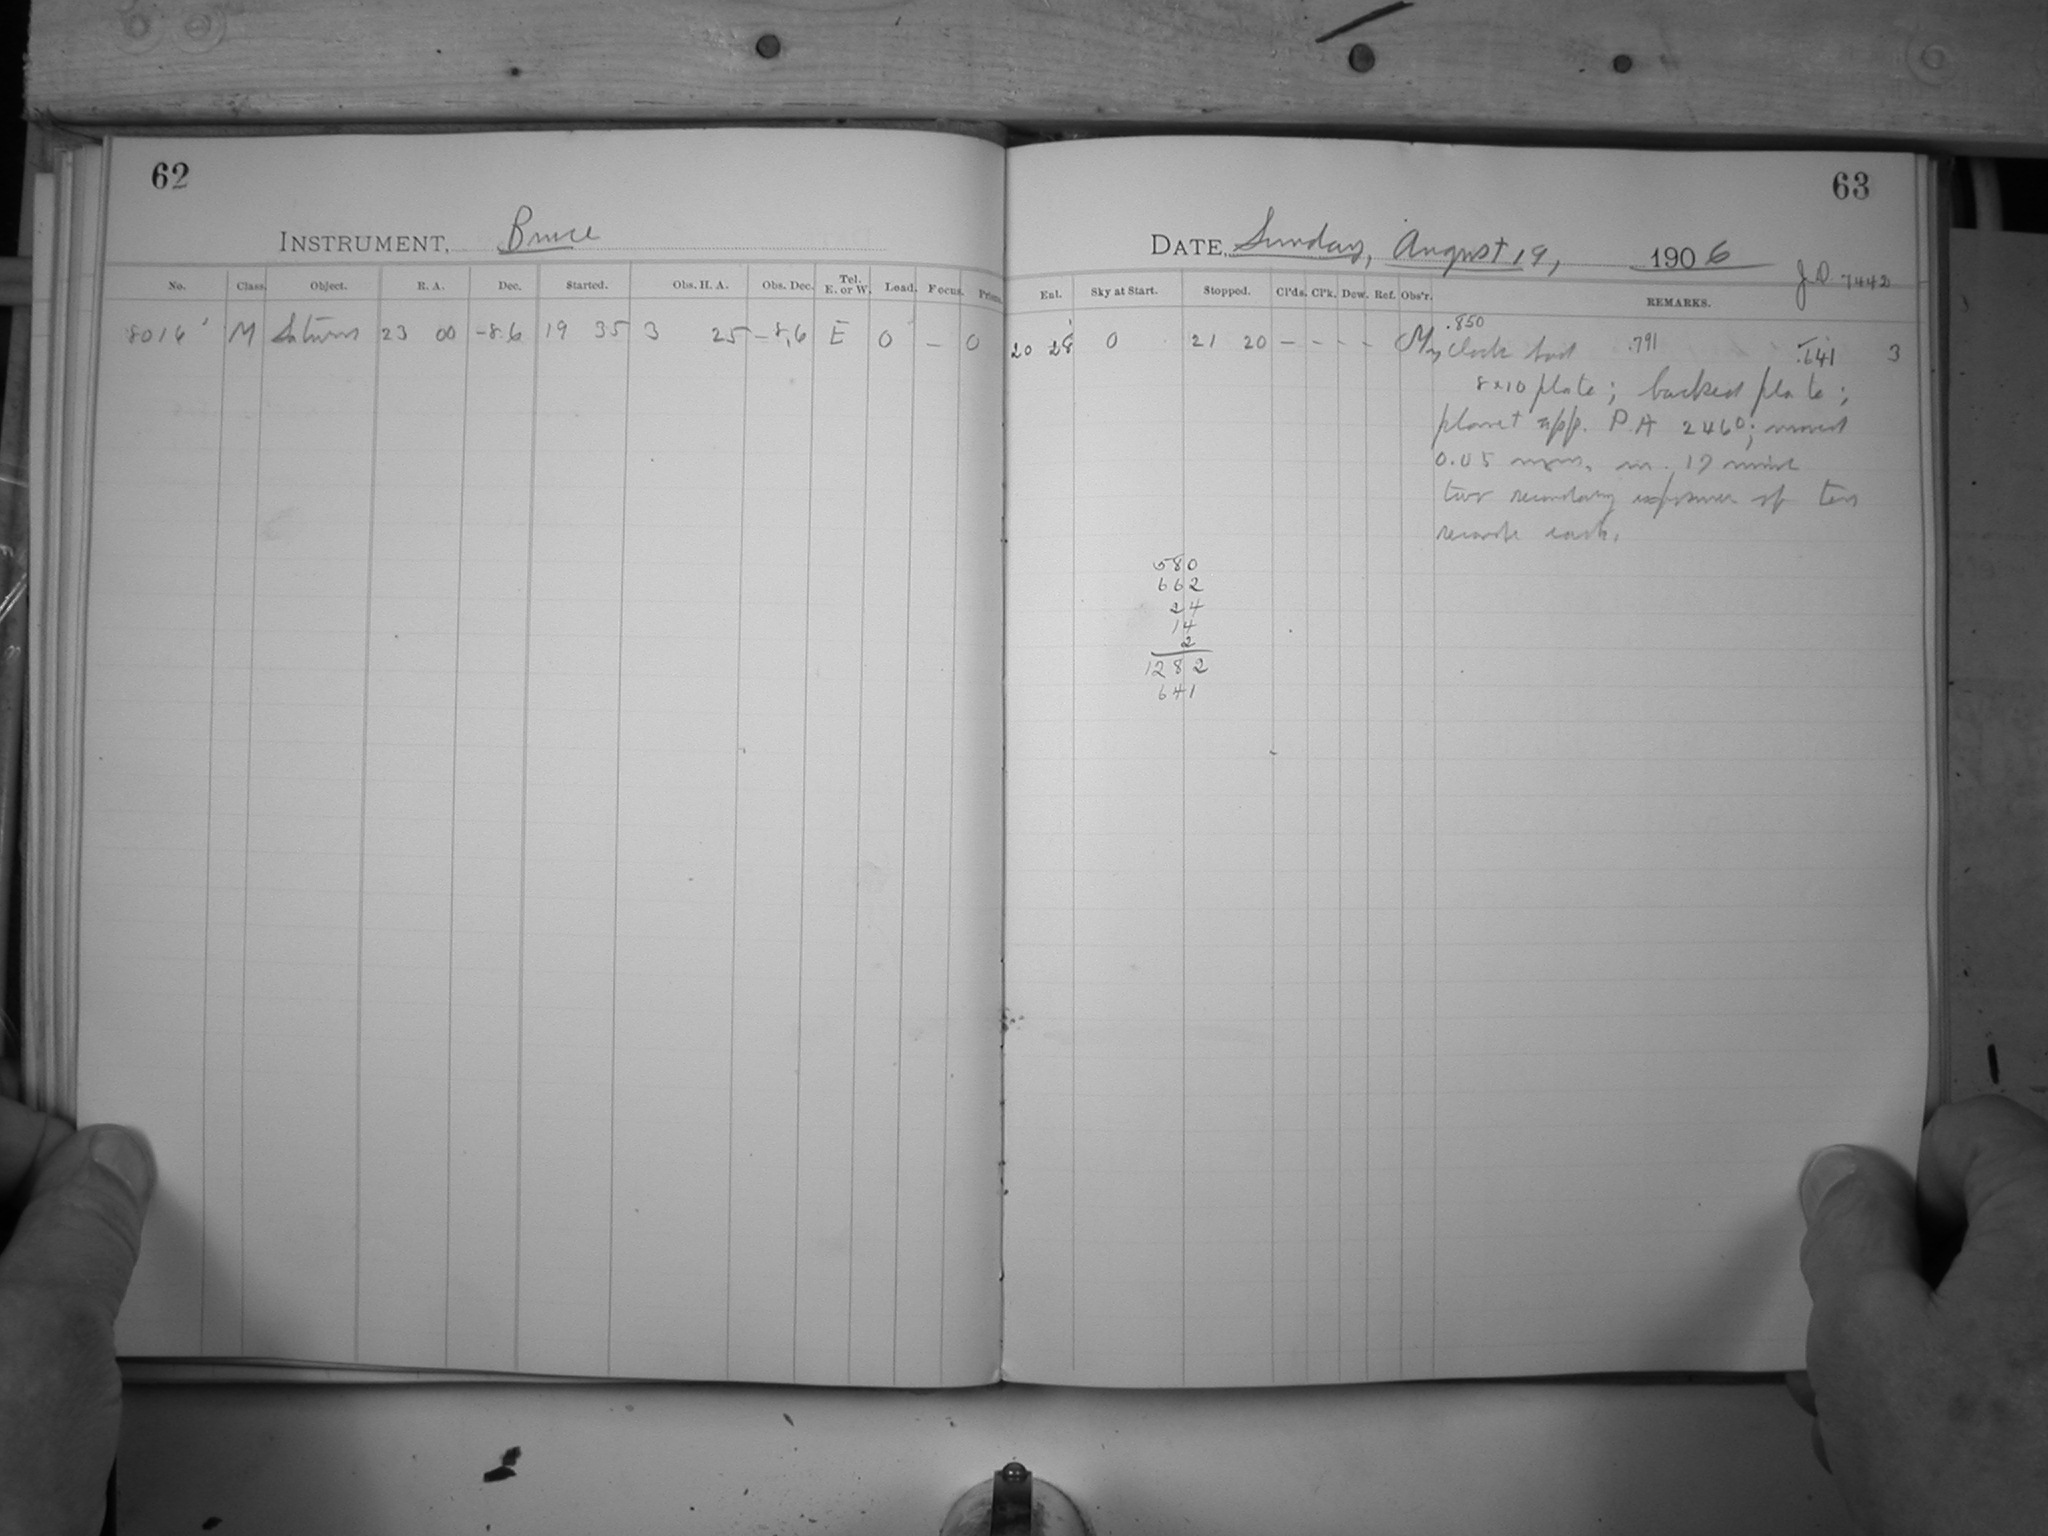 62
INSTRUMENT, Bruce
No. Class. Object. R. A. Dec. Started. Obs. H. A. Obs. Dec. Tel. E. or W. Lead. Focus. Prism.
8016 M Saturn 23 00 -8.6 19 35 3 25 -8.6 E 0 - 0
63
DATE, Sunday, August 19, 1906
J.D. 7442
Ent. Sky at Start. Stopped. Cl'ds. Cl'k. Dew. Ref. Obs'r. REMARKS.
.850
20 28 0 21 20 - - - - My Clock bad .791 .641 3
8x10 plate; backed plate;
planet app. P.A 246°; moved
0.05 mm. in 17 mins
two secondary exposures of ten
each.
580
662
24
14
2
1282
641